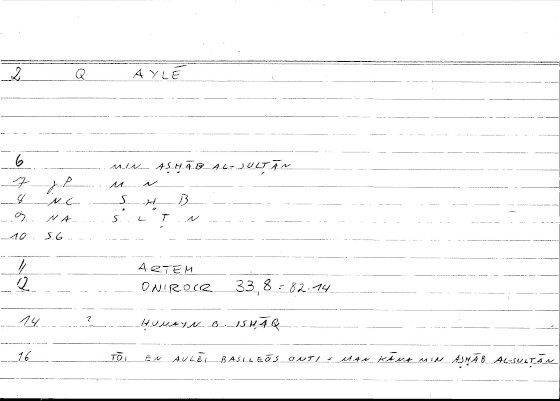 2 Q AYLĒ
6 MIN AṢḤĀB AL-SULṬĀN
7 JP M N
8 NC Ṣ Ḥ B
9 NA S L Ṭ N
10 SG
11 ARTEM
12 ONIROCR 33,8 = 82.14
14 ? HUNAYN B. ISḤĀQ
16 TŌI EN AULĒI BASILEŌS ONTI = MAN KĀNA MIN AṢḤĀB AL-SULṬĀN